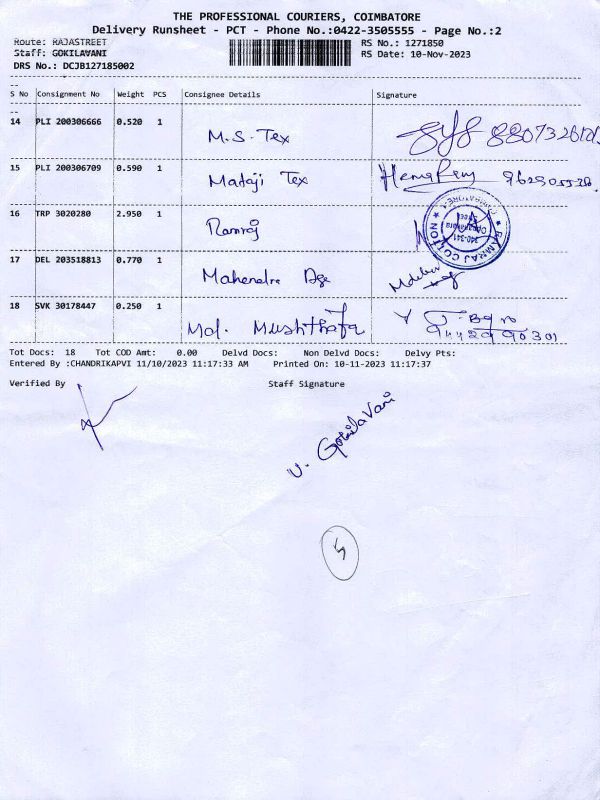 THE PROFESSIONAL COURIERS, COIMBATORE
Delivery Runsheet - PCT - Phone No.:0422-3505555 - Page No.:2
Route: RAJASTREET RS No.: 1271850
Staff: GOKILAVANI RS Date: 10-Nov-2023
DRS No.: DCJB127185002
S No Consignment No Weight PCS Consignee Details Signature
14 PLI 200306666 0.520 1 M.S. Tex
15 PLI 200306709 0.590 1 Mataji Tex
16 TRP 3020280 2.950 1 Ramraj
17 DEL 203518813 0.770 1 Mahendra
18 SVK 30178447 0.250 1 Md. Mushthafa
Tot Docs: 18 Tot COD Amt: 0.00 Delvd Docs: Non Delvd Docs: Delvy Pts:
Entered By :CHANDRIKAPVI 11/10/2023 11:17:33 AM Printed On: 10-11-2023 11:17:37
Verified By Staff Signature
V. Gokilavani
5